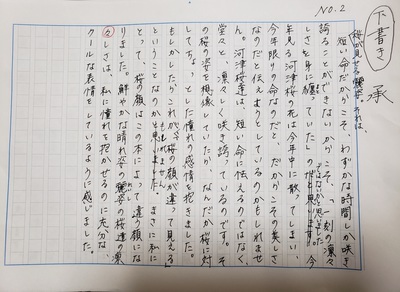 NO.2
下書き
承
桜が見せる麗姿。それは、
短い命だからこそ、わずかな時間しか咲き
誇ることができないからこそ、「一刻の凛々
しさを身に纏っていた」
ではないかと思いました。今
年見る河津桜の花は今年中に散ってしまい、
今年限りの命なのだと、だからこその美しさ
なのだと伝えようとしているのかもしれませ
ん。河津桜達は、短い命に怯えるのではなく、
堂々と、凛々しく咲き誇っているのです。そ
の桜の姿を想像していたら、なんだか桜に対
してちょっとした憧れの感情を抱きました。
もしかしたらこれが、「桜の顔が違って見える」
ということなのかもしれません。まさに私に
とって、桜の顔はこの本によって違う顔にな
りました。鮮やかな晴れ姿の麗姿の桜達の凛
々しさは、私に憧れを抱かせるのに充分な、
クールな表情をしているように感じました。